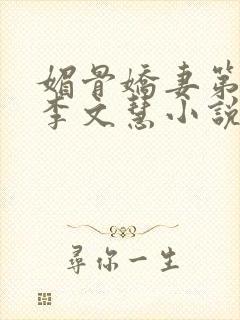 媚骨嬌妻第
李文慧小說
尋你一生